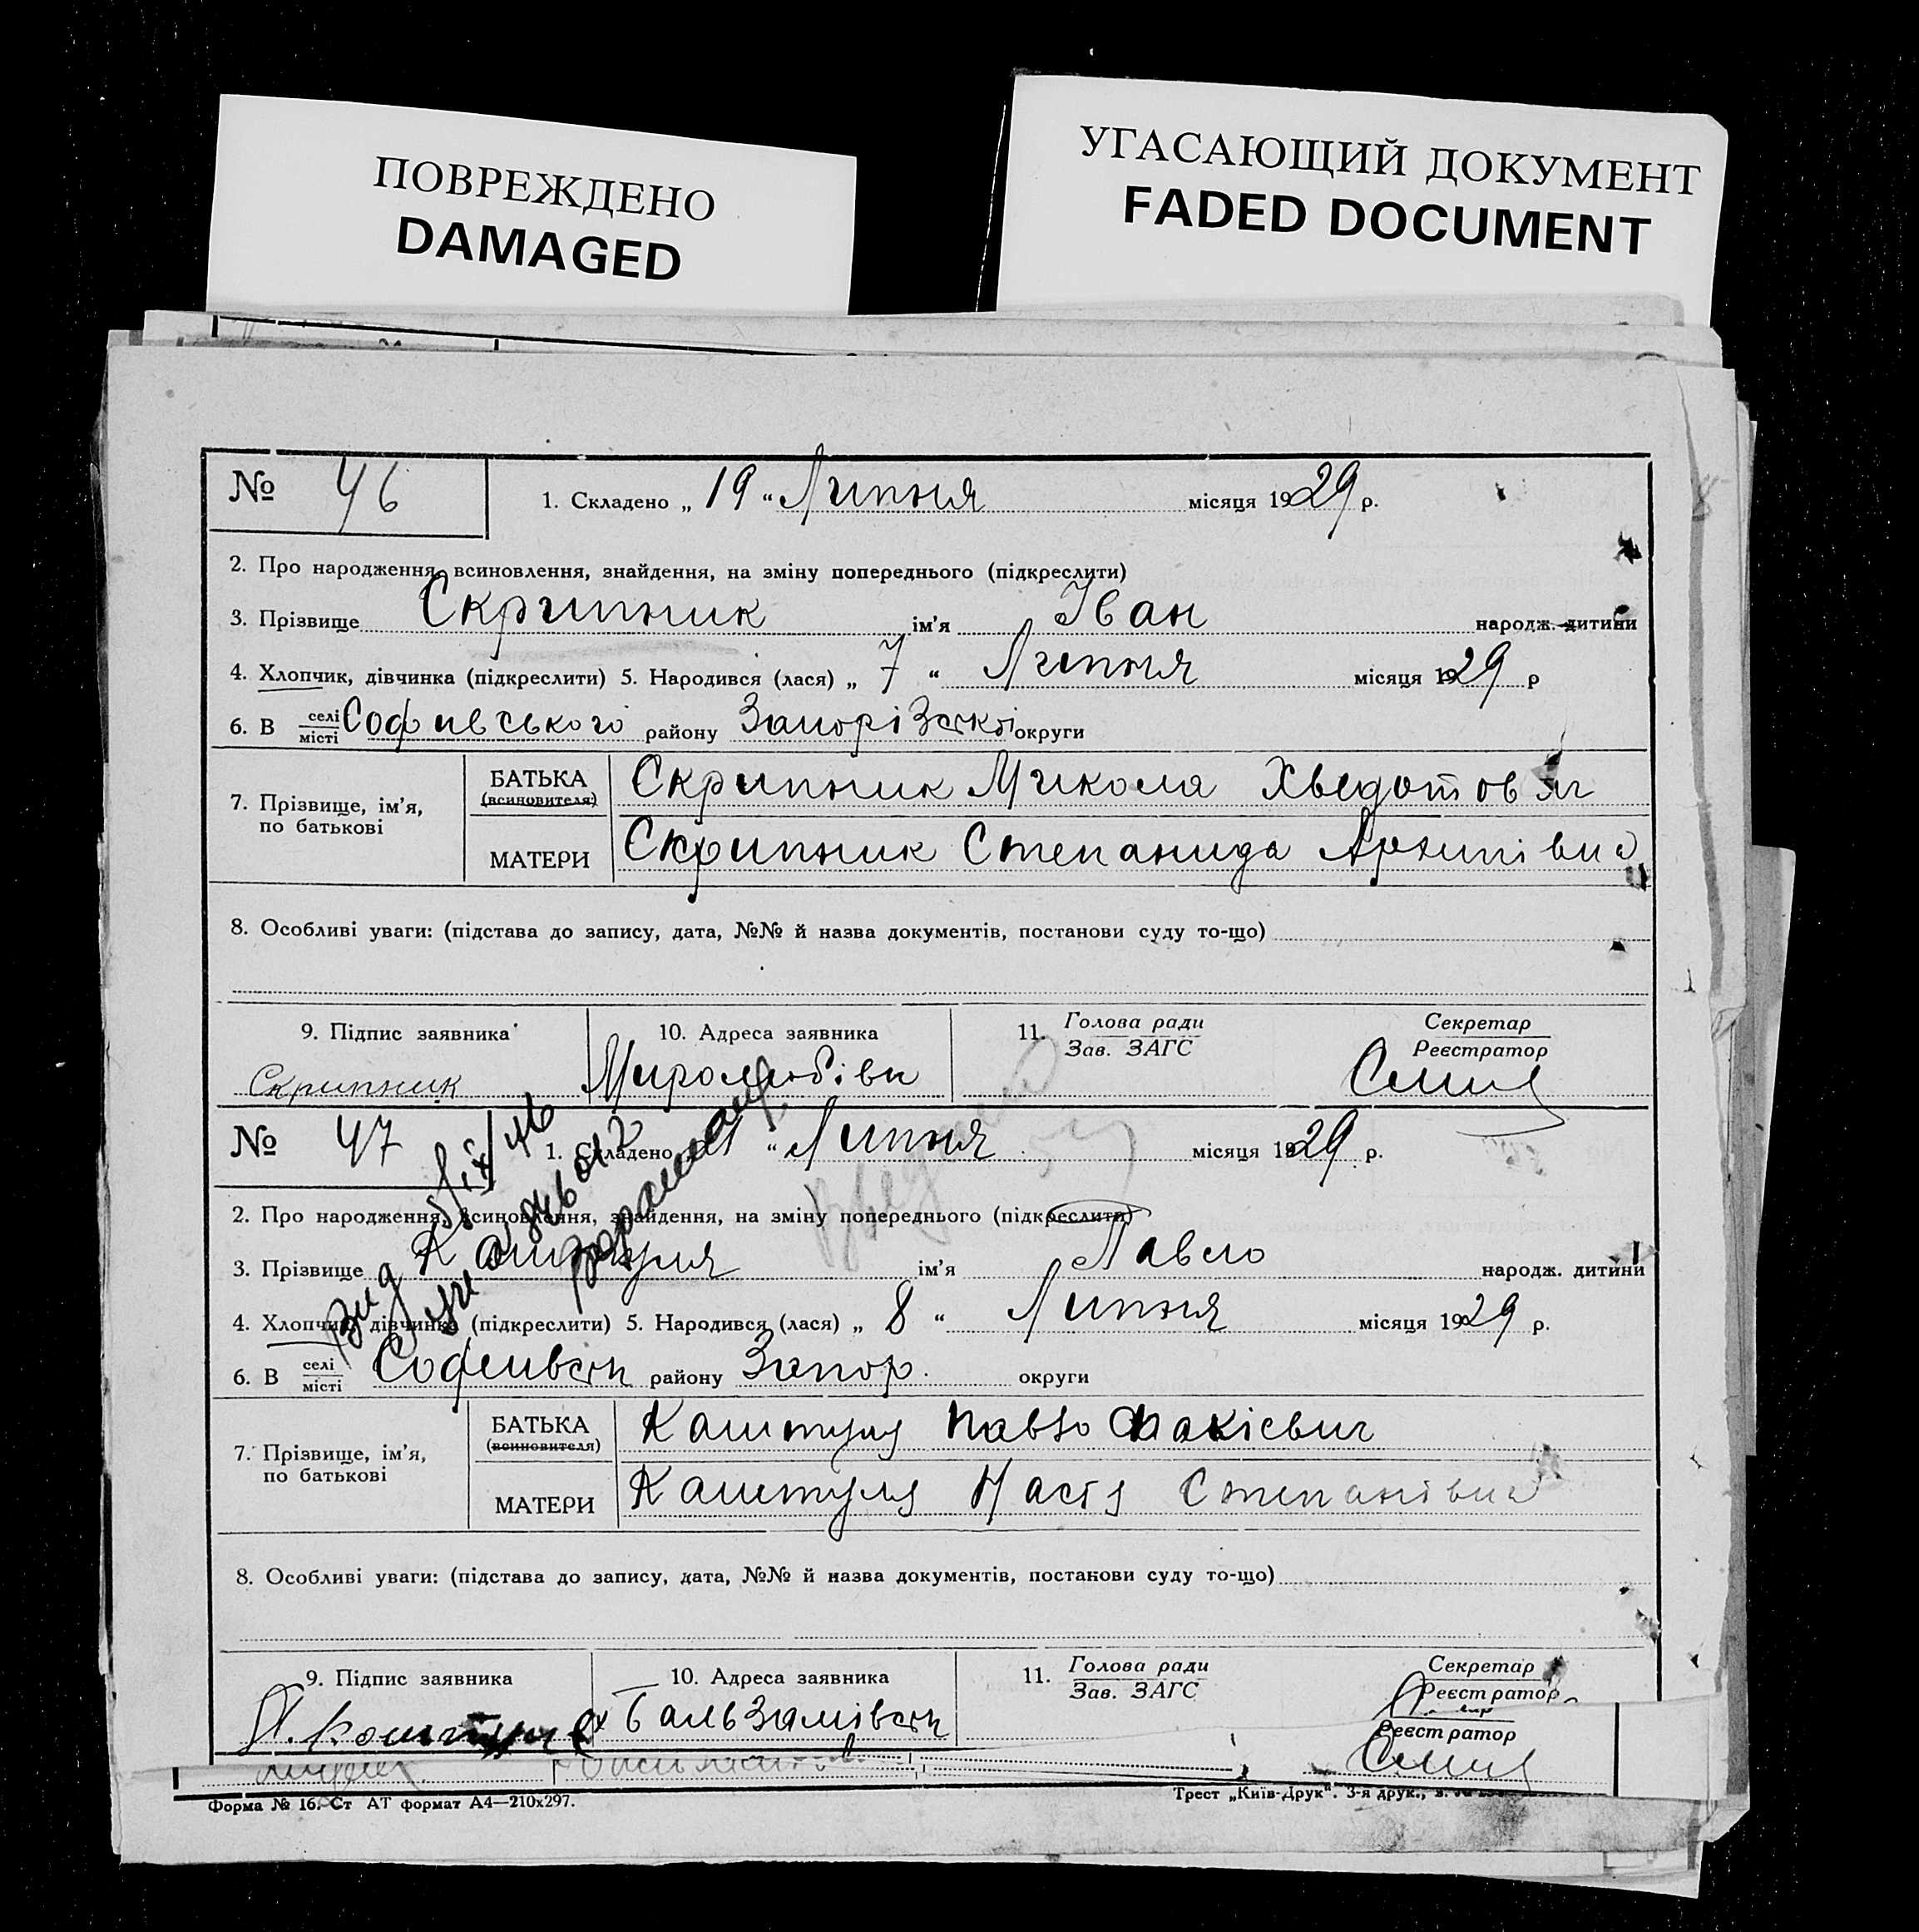 ПОВРЕЖДЕНО
DAMAGED
УГАСАЮЩИЙ ДОКУМЕНТ
FADED DOCUMENT
№ 46
1. Складено „ 19 “ Липня місяця 1929 р.
2. Про народження, всиновлення, знайдення, на зміну попереднього (підкреслити)
3. Прізвище Скрипник ім’я Іван народж. дитини
4. Хлопчик, дівчинка (підкреслити) 5. Народився (лася) „ 7 “ Липня місяця 1929 р
6. В селі місті Софиевського району Запорізської округи
7. Прізвище, ім’я, по батькові
БАТЬКА (всиновителя) Скрипник Микола Хведотович
МАТЕРИ Скрипник Степанида Архипівна
8. Особливі уваги: (підстава до запису, дата, №№ й назва документів, постанови суду то-що)
9. Підпис заявника
10. Адреса заявника
11. Голова ради
Зав. ЗАГС
Секретар
Реєстратор
Скрипник
Миролюбівк
№ 47
1. Складено “ Липня місяця 1929 р.
2. Про народження, всиновлення, знайдення, на зміну попереднього (підкреслити)
3. Прізвище Каштуля ім’я Павло народж. дитини
4. Хлопчик, дівчинка (підкреслити) 5. Народився (лася) „ 8 “ Липня місяця 1929 р.
6. В селі місті Софиивськ району Запор. округи
7. Прізвище, ім’я, по батькові
БАТЬКА (всиновителя) Каштуля Павло
МАТЕРИ Каштуля Настя Степанівна
8. Особливі уваги: (підстава до запису, дата, №№ й назва документів, постанови суду то-що)
9. Підпис заявника
10. Адреса заявника
11. Голова ради
Зав. ЗАГС
Секретар
Реєстратор
Бальзамівськ
Реєстратор
Форма № 16. Ст АТ формат А4—210х297.
Трест „Київ-Друк“. 3-я друк.,